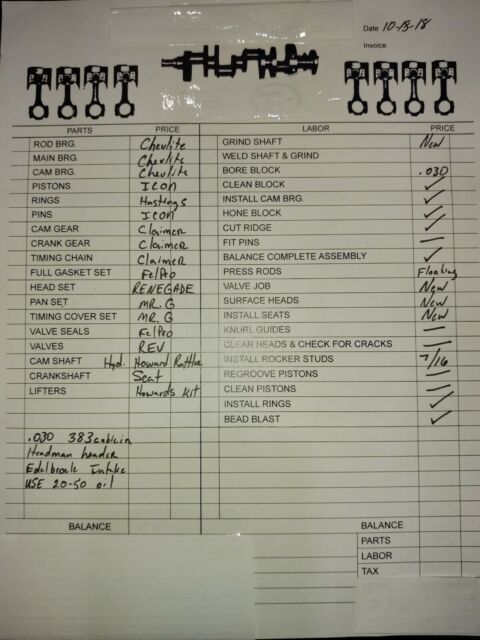 Date 10-18-18
Invoice
PARTS PRICE LABOR PRICE
ROD BRG. Chevlite GRIND SHAFT New
MAIN BRG. Chevlite WELD SHAFT & GRIND
CAM BRG. Chevlite BORE BLOCK .030
PISTONS Icon CLEAN BLOCK ✓
RINGS Hastings INSTALL CAM BRG. ✓
PINS Icon HONE BLOCK ✓
CAM GEAR Claimer CUT RIDGE ✓
CRANK GEAR Claimer FIT PINS —
TIMING CHAIN Claimer BALANCE COMPLETE ASSEMBLY ✓
FULL GASKET SET FelPro PRESS RODS Floating
HEAD SET RENEGADE VALVE JOB New
PAN SET MR. G SURFACE HEADS New
TIMING COVER SET MR. G INSTALL SEATS New
VALVE SEALS FelPro KNURL GUIDES —
VALVES REV CLEAN HEADS & CHECK FOR CRACKS —
CAM SHAFT Hyd. Howard Rattler INSTALL ROCKER STUDS 7/16
CRANKSHAFT Scat REGROOVE PISTONS —
LIFTERS Howards Kit CLEAN PISTONS —
INSTALL RINGS ✓
BEAD BLAST ✓
.030 383
Headman header
Edelbrock Intake
USE 20-50 oil
BALANCE BALANCE
PARTS
LABOR
TAX